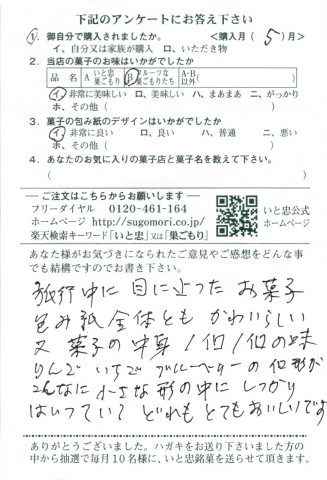 下記のアンケートにお答え下さい
1. 御自分で購入されましたか。 <購入月( 5 )月>
イ、自分又は家族が購入 ロ、いただき物
2. 当店の菓子のお味はいかがでしたか
品 名 A いと忠 巣ごもり B フルーツな 巣ごもりたち A・B 以外( )
イ、非常に美味しい ロ、美味しい ハ、まあまあ ニ、がっかり
ホ、その他( )
3. 菓子の包み紙のデザインはいかがでしたか
イ、非常に良い ロ、良い ハ、普通 ニ、悪い
ホ、その他( )
4. あなたのお気に入りの菓子店と菓子名を教えて下さい。
( )
ご注文はこちらからお願いします
フリーダイヤル 0120-461-164
ホームページ http://sugomori.co.jp/
楽天検索キーワード「いと忠」又は「巣ごもり」
いと忠公式
ホームページ
あなた様がお気づきになられたご意見やご感想をどんな事
でも結構ですのでお書き下さい。
旅行中に目に止った お菓子
包み紙全体とも かわいらしい
又 菓子の中身 1個1個の味
りんご いちご ブルーベリーの 形が
こんなに 小さな形の中に しっかり
はいっていて どれも とてもおいしいです
ありがとうございました。ハガキをお送り下さいました方の
中から抽選で毎月10名様に、いと忠銘菓を送らせて頂きます。